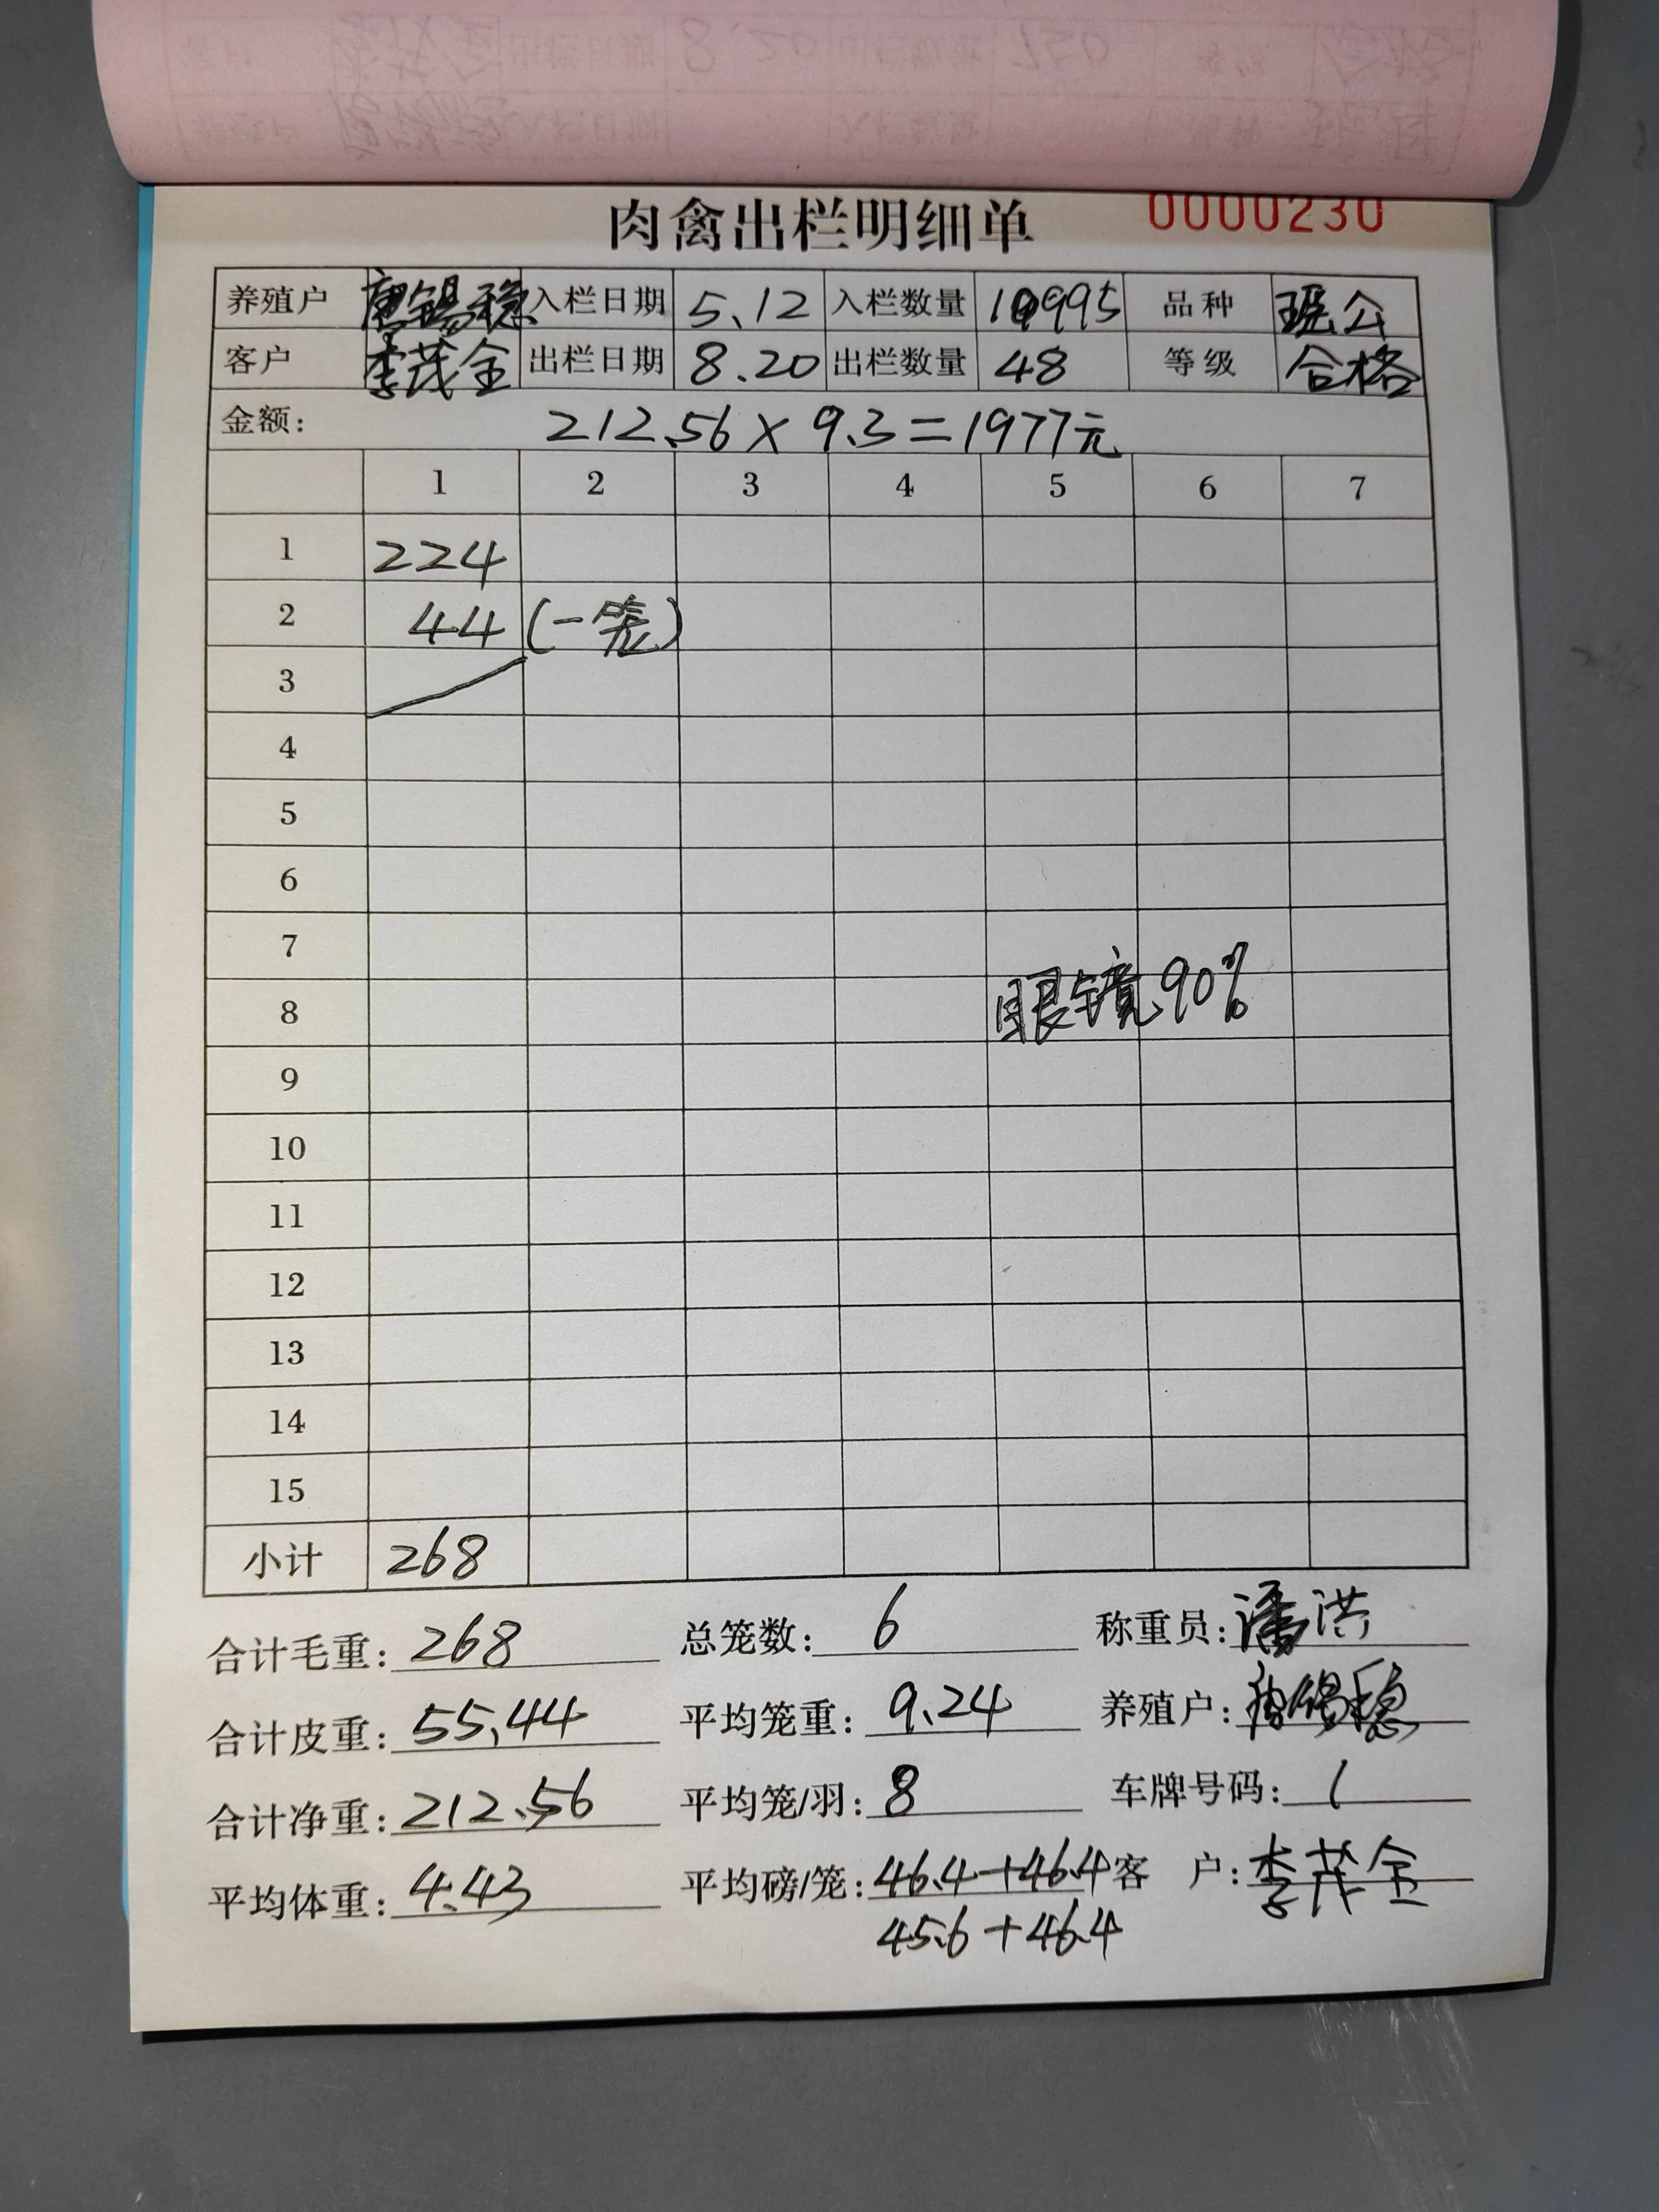 肉禽出栏明细单 0000230
养殖户 唐锡稳 入栏日期 5.12 入栏数量 10995 品种 瑶公
客户 李茂全 出栏日期 8.20 出栏数量 48 等级 合格
金额: 212.56×9.3=1977元
1 2 3 4 5 6 7
1 224
2 44 (一笼)
3
4
5
6
7
8 眼镜90%
9
10
11
12
13
14
15
小计 268
合计毛重: 268 总笼数: 6 称重员: 潘洪
合计皮重: 55.44 平均笼重: 9.24 养殖户: 唐锡稳
合计净重: 212.56 平均笼/羽: 8 车牌号码: 1
平均体重: 4.43 平均磅/笼: 46.4+46.4 客户: 李茂全
45.6+46.4